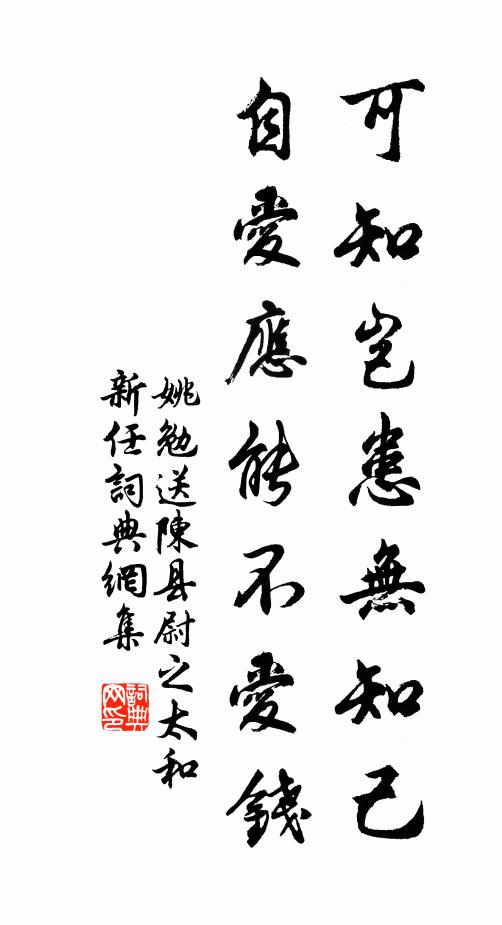 可知豈患無知己
自愛應能不愛錢
姚勉送陳县尉之太和
新任詞典網集
詞典
网印